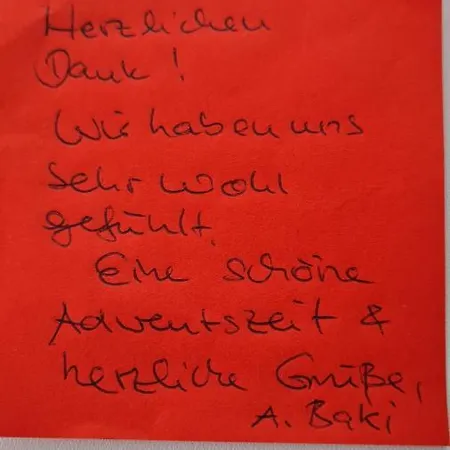 Herzlichen
Dank!
Wir haben uns
sehr wohl
gefühlt.
Eine schöne
Adventszeit &
herzliche Grüße,
A. Baki